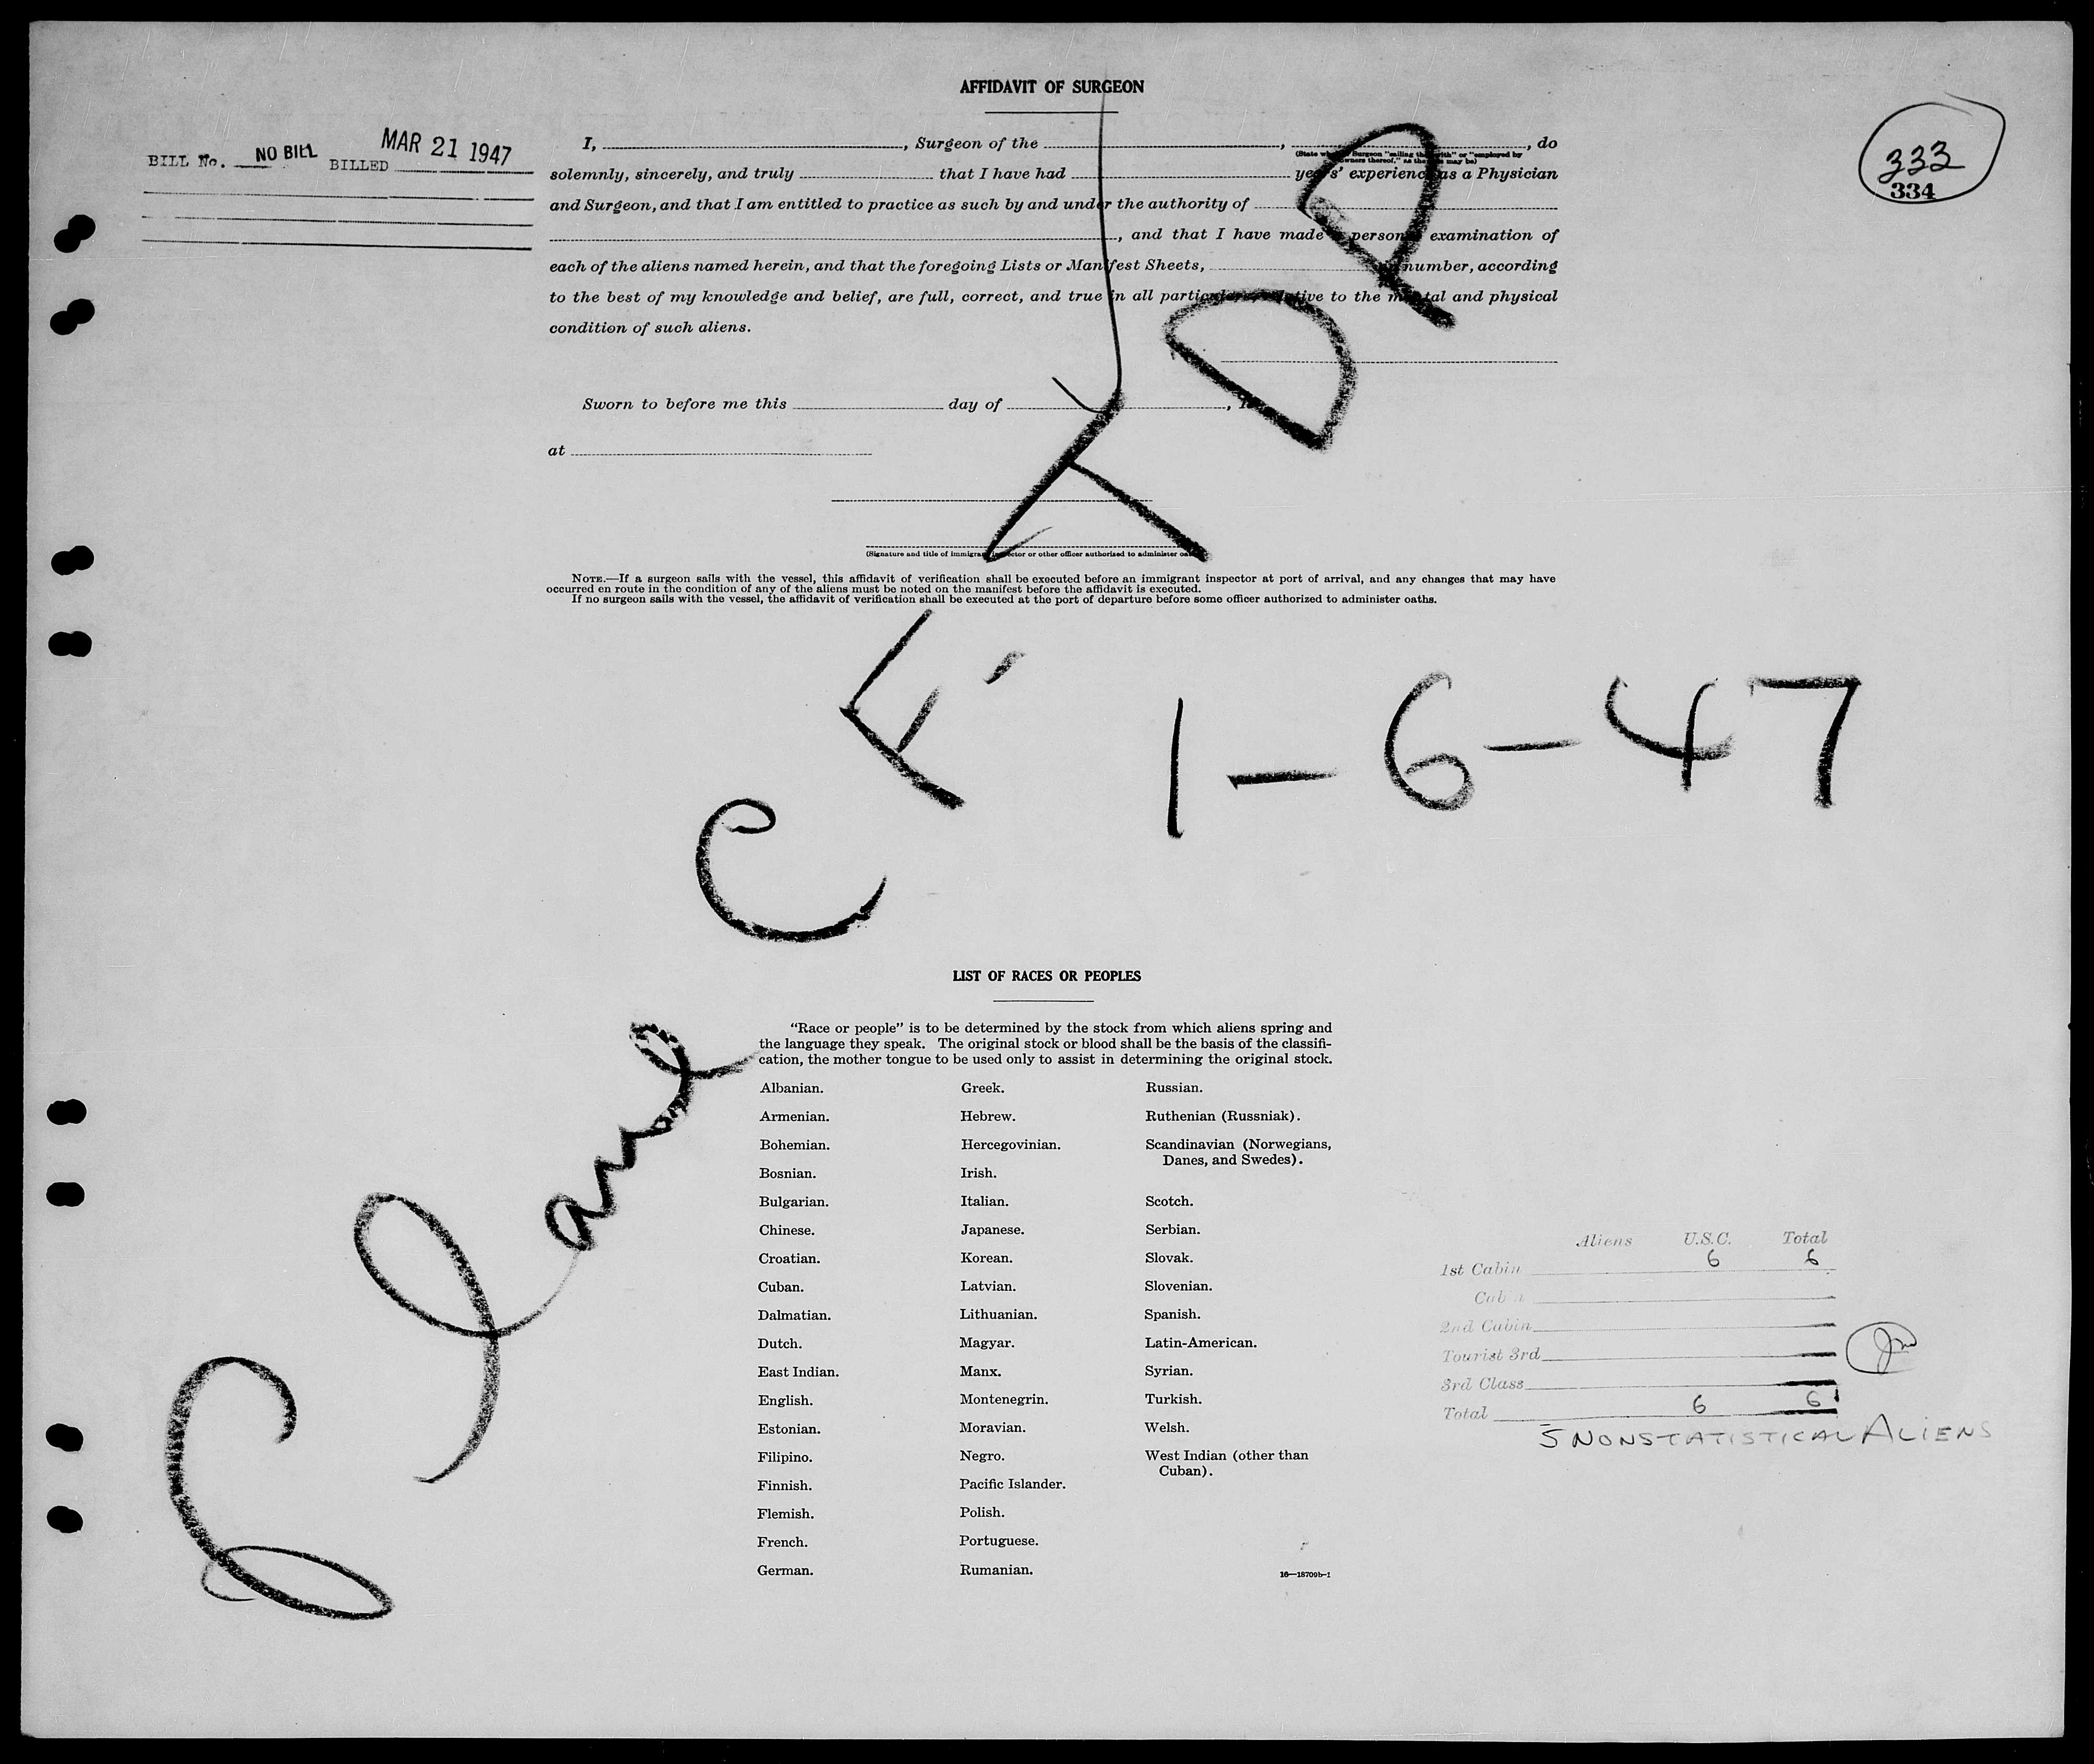 AFFIDAVIT OF SURGEON
BILL No. NO BILL BILLED MAR 21 1947
333
334
I, , Surgeon of the , , do
(State whether Surgeon "sailing therewith" or "employed by
owners thereof," as the case may be)
solemnly, sincerely, and truly that I have had years' experience as a Physician
and Surgeon, and that I am entitled to practice as such by and under the authority of
, and that I have made a personal examination of
each of the aliens named herein, and that the foregoing Lists or Manifest Sheets, in number, according
to the best of my knowledge and belief, are full, correct, and true in all particulars relative to the mental and physical
condition of such aliens.
Sworn to before me this day of , 19
at
(Signature and title of immigrant inspector or other officer authorized to administer oaths)
NOTE.—If a surgeon sails with the vessel, this affidavit of verification shall be executed before an immigrant inspector at port of arrival, and any changes that may have
occurred en route in the condition of any of the aliens must be noted on the manifest before the affidavit is executed.
If no surgeon sails with the vessel, the affidavit of verification shall be executed at the port of departure before some officer authorized to administer oaths.
1-6-47
LIST OF RACES OR PEOPLES
"Race or people" is to be determined by the stock from which aliens spring and
the language they speak. The original stock or blood shall be the basis of the classifi-
cation, the mother tongue to be used only to assist in determining the original stock.
Albanian.
Armenian.
Bohemian.
Bosnian.
Bulgarian.
Chinese.
Croatian.
Cuban.
Dalmatian.
Dutch.
East Indian.
English.
Estonian.
Filipino.
Finnish.
Flemish.
French.
German.
Greek.
Hebrew.
Hercegovinian.
Irish.
Italian.
Japanese.
Korean.
Latvian.
Lithuanian.
Magyar.
Manx.
Montenegrin.
Moravian.
Negro.
Pacific Islander.
Polish.
Portuguese.
Rumanian.
Russian.
Ruthenian (Russniak).
Scandinavian (Norwegians,
Danes, and Swedes).
Scotch.
Serbian.
Slovak.
Slovenian.
Spanish.
Latin-American.
Syrian.
Turkish.
Welsh.
West Indian (other than
Cuban).
16—18709b-1
Aliens U.S.C. Total
1st Cabin 6 6
Cabin
2nd Cabin
Tourist 3rd
3rd Class
Total 6 6
5 NONSTATISTICAL ALIENS